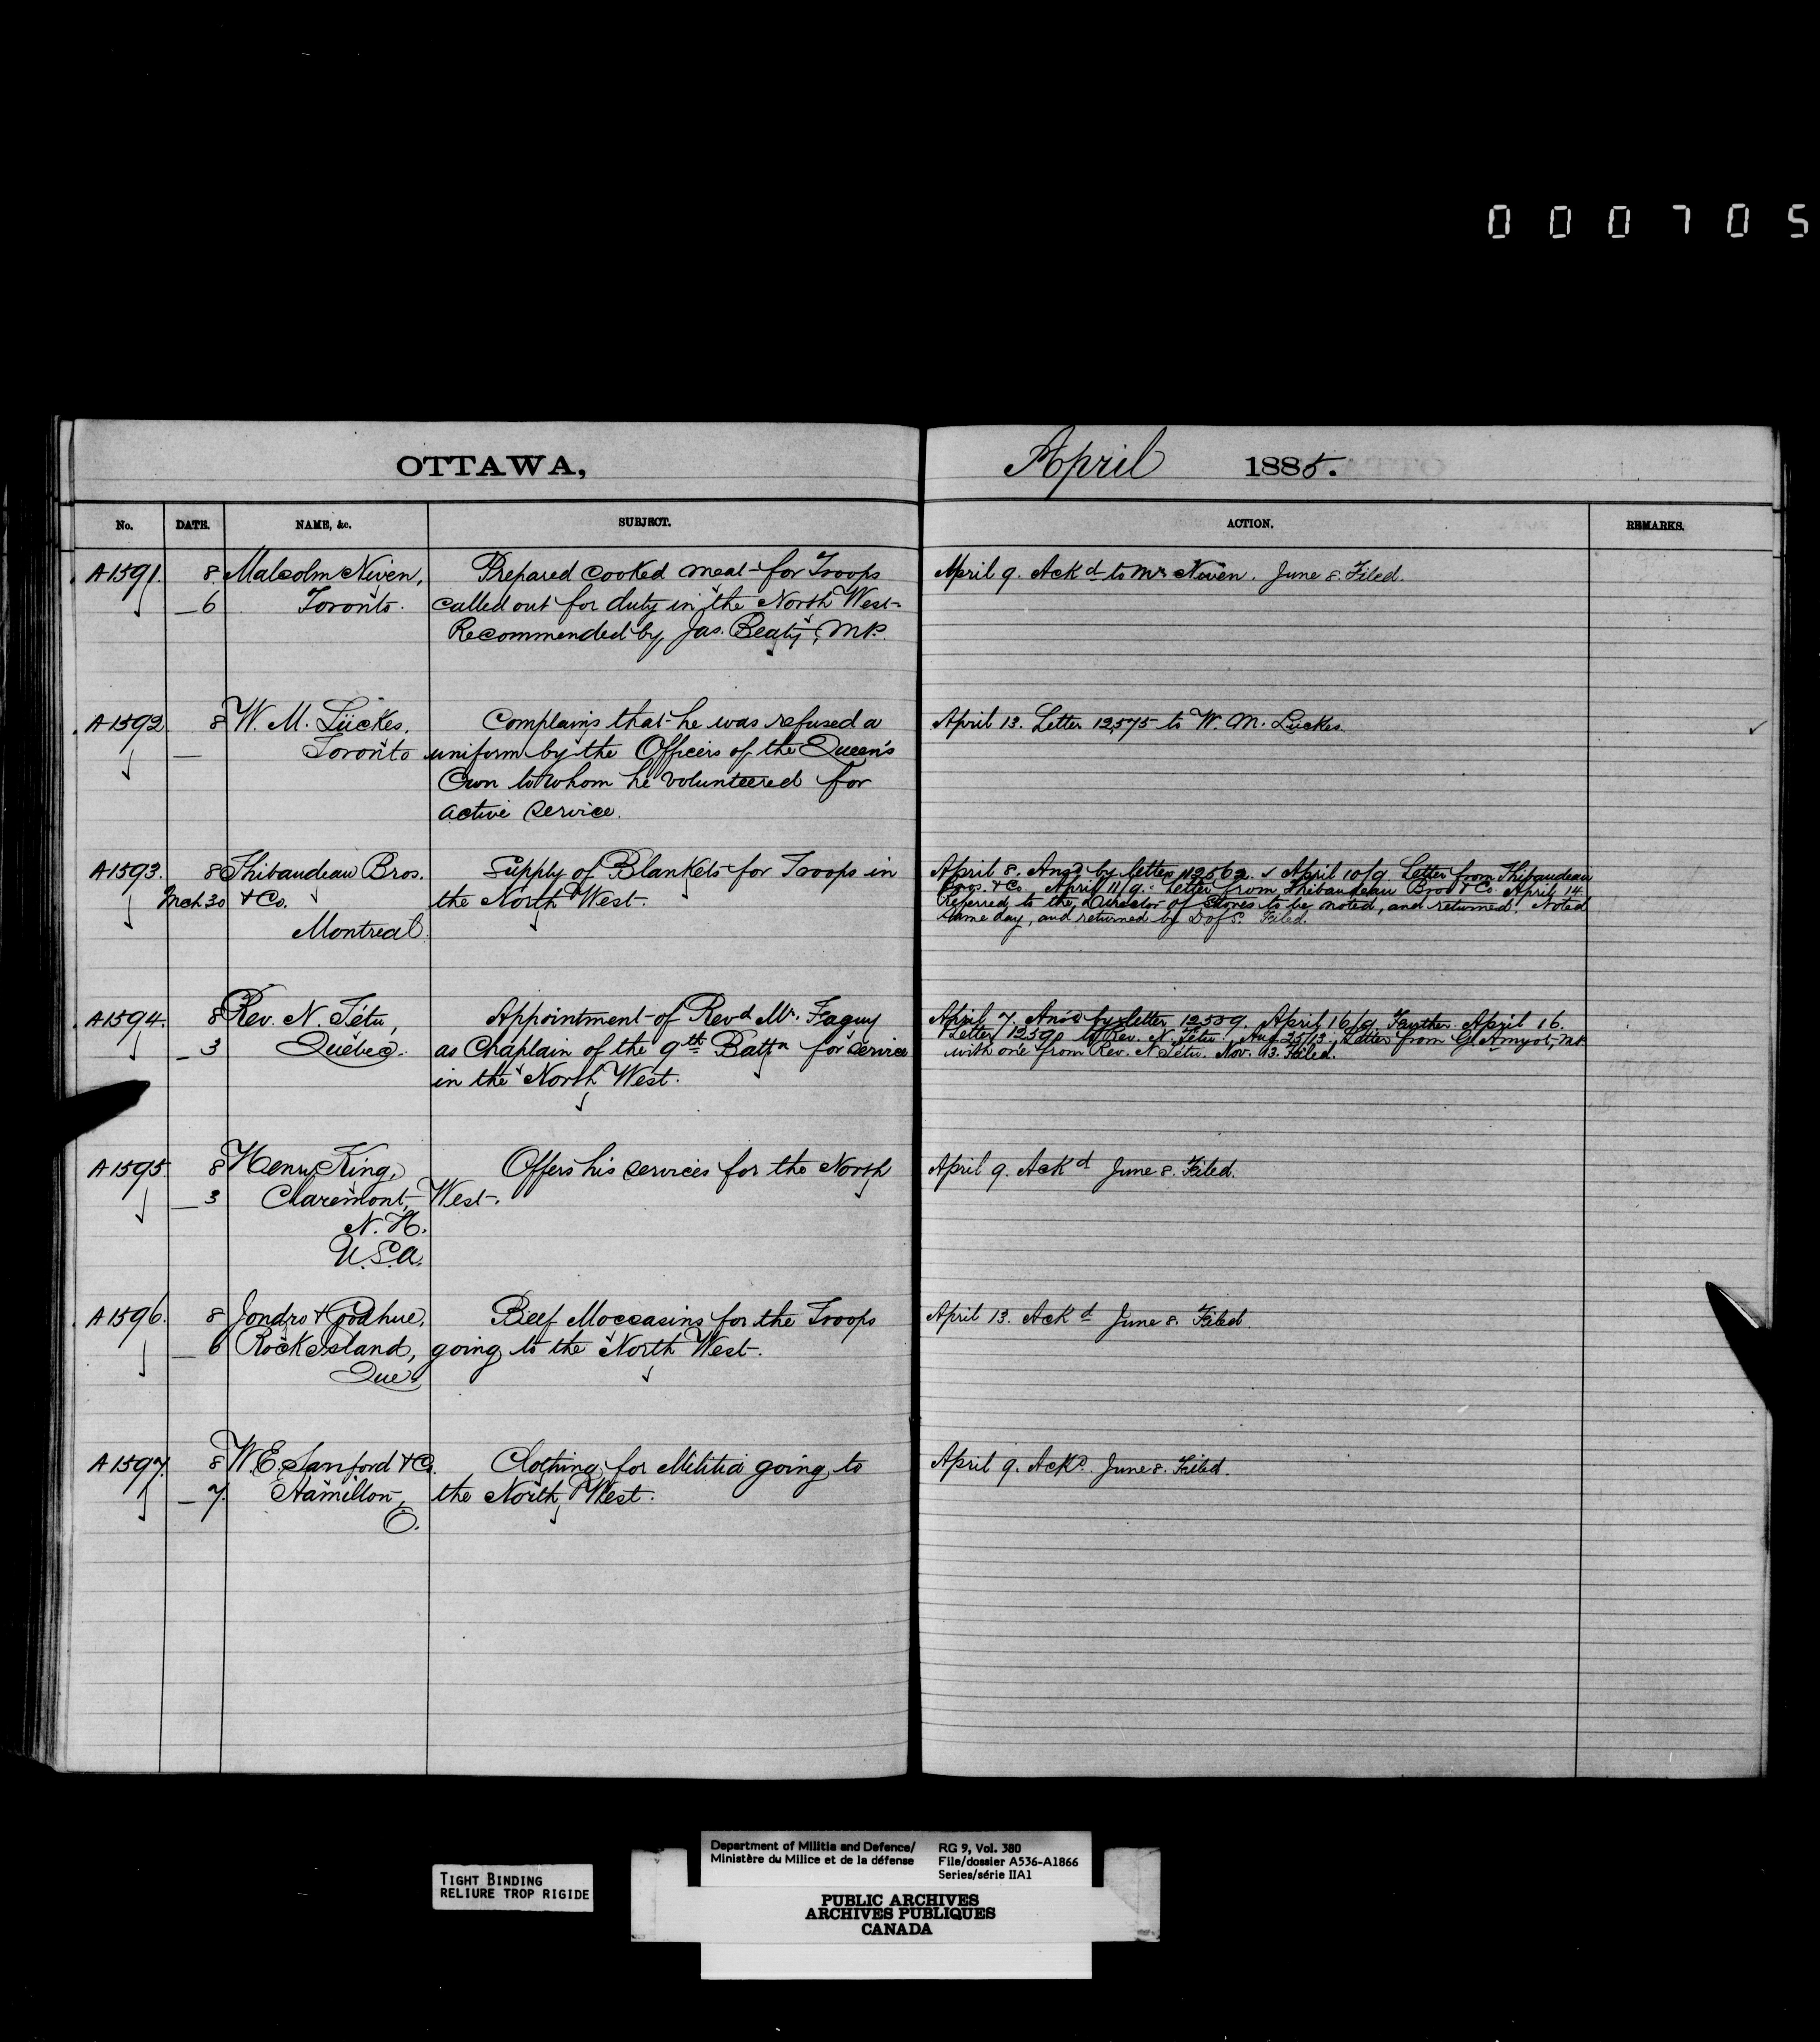 000705
OTTAWA,
April 1885.
No. DATE. NAME, &c. SUBJECT. ACTION. REMARKS.
A1591. 8. Malcolm Niven, Prepared cooked meat for Troops April 9. Ackd to Mr Niven. June 8. Filed.
— 6 Toronto. called out for duty in the North West.
Recommended by Jas. Beaty, M.P.
A1592 8 W. M. Lückes, Complains that he was refused a April 13. Letter 12,575 to W. M. Luckes.
— Toronto uniform by the Officers of the Queen's
Own to whom he volunteered for
active service.
A1593. 8 Thibaudeau Bros. Supply of Blankets for Troops in April 8. Ansd by letter 12562. April 10/9. Letter from Thibaudeau
Mch 30 & Co. the North West. Bros. & Co. April 11/9. Letter from Thibaudeau Bros & Co. April 14.
Montreal. Referred to the Director of Stores to be noted, and returned. Noted
same day, and returned by D of S. Filed.
A1594. 8 Rev. N. Têtu, Appointment of Revd Mr. Faguy April 7. Ansd by letter 12589. April 16/9. Further. April 16.
— 3 Québec. as Chaplain of the 9th Battn for service Letter 12590 to Rev. N. Têtu. Aug 25/13. Letter from G. Amyot, MP.
in the North West. with one from Rev. N. Têtu. Nov. 13. Filed.
A1595 8 Henry King, Offers his services for the North April 9. Ackd June 8. Filed.
— 3 Claremont, West.
N. H.
U.S.A.
A1596. 8 Jondro & Goodhue, Beef Moccasins for the Troops April 13. Ackd June 8. Filed.
— 6 Rock Island, going to the North West.
Que.
A1597. 8 W. E. Sanford & Co. Clothing for Militia going to April 9. Ackd. June 8. Filed.
— 7. Hamilton, the North West.
O.
TIGHT BINDING
RELIURE TROP RIGIDE
Department of Militia and Defence/
Ministère du Milice et de la défense
RG 9, Vol. 380
File/dossier A536-A1866
Series/série IIA1
PUBLIC ARCHIVES
ARCHIVES PUBLIQUES
CANADA